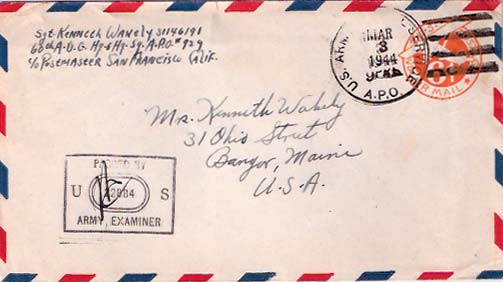 Sgt. Kenneth Wakely 31146191
68th A.D.G. Hq & Hq. Sq. A.P.O. # 929
c/o Postmaster San Francisco Calif.
U.S. ARMY
MAR
3
1944
A.P.O.
6¢
AIR MAIL
Mr. Kenneth Wakely
31 Ohio Street
Bangor, Maine
U.S.A.
PASSED BY
U S
ARMY EXAMINER